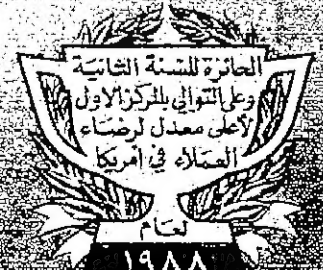 الحائزة للسنة الثانية
وعلى التوالي بالمركز الاول
لأعلى معدل لرضاء
العملاء في امريكا
لعام
١٩٨٨